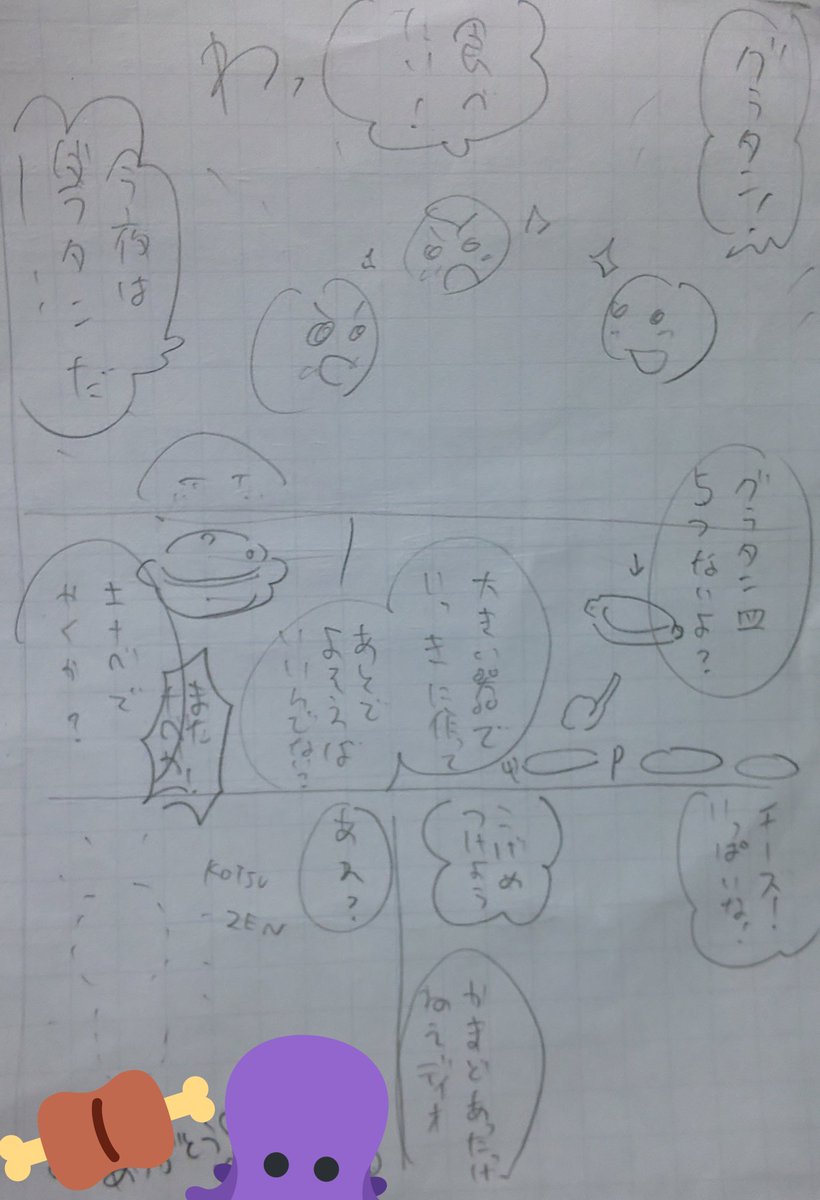 グラタン!
食べ
たい!
わー
今夜は
グラタンだ
ー!
グラタン皿
5つないよ?
大きい器で
いっきに作って
あとで
よそえば
いいんでない?
また
土なべで
やくか?
チーズ!
いっぱいな!
こげめ
つけよう
かまどあったっけ
ねえディオ
あれ?
KOTSU
ZEN